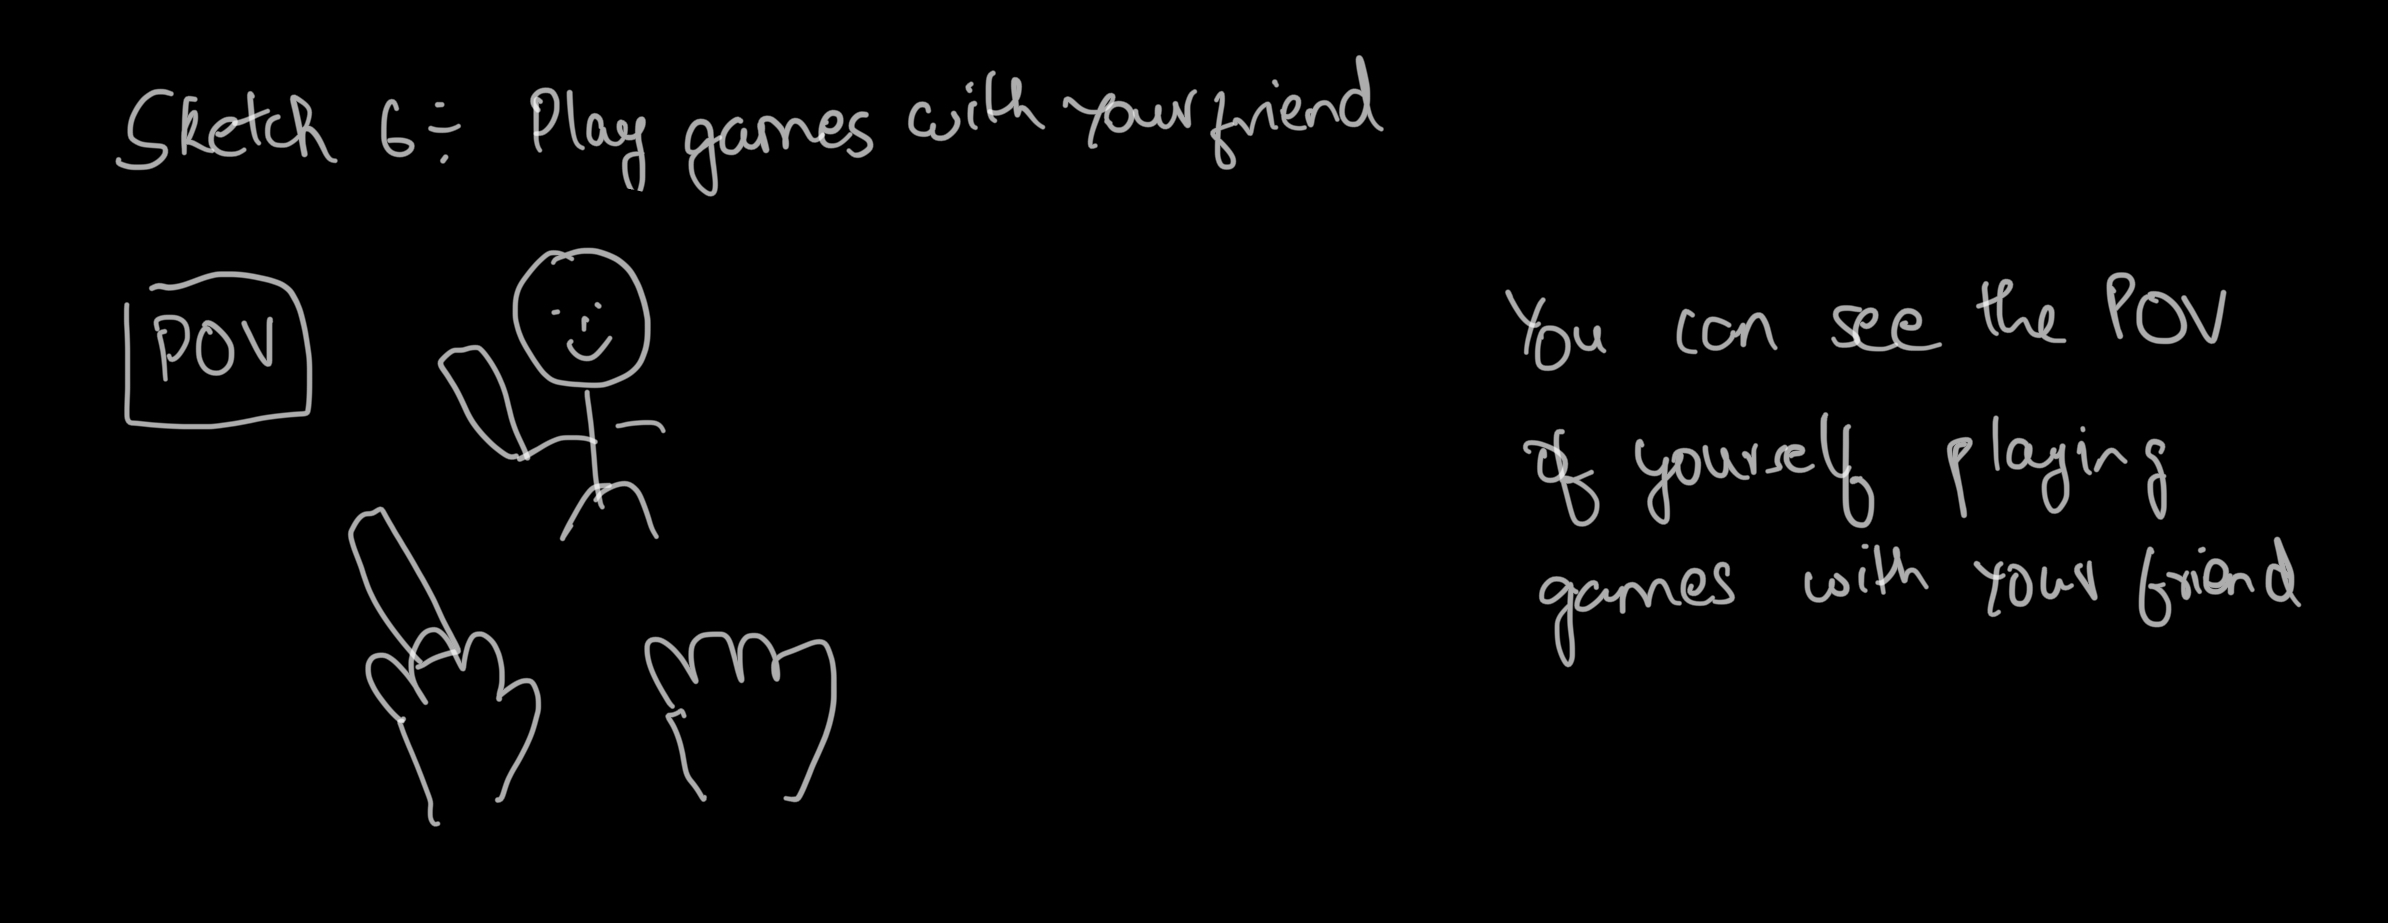 Sketch 6:- Play games with your friend
POV
You can see the POV
of yourself playing
games with your friend